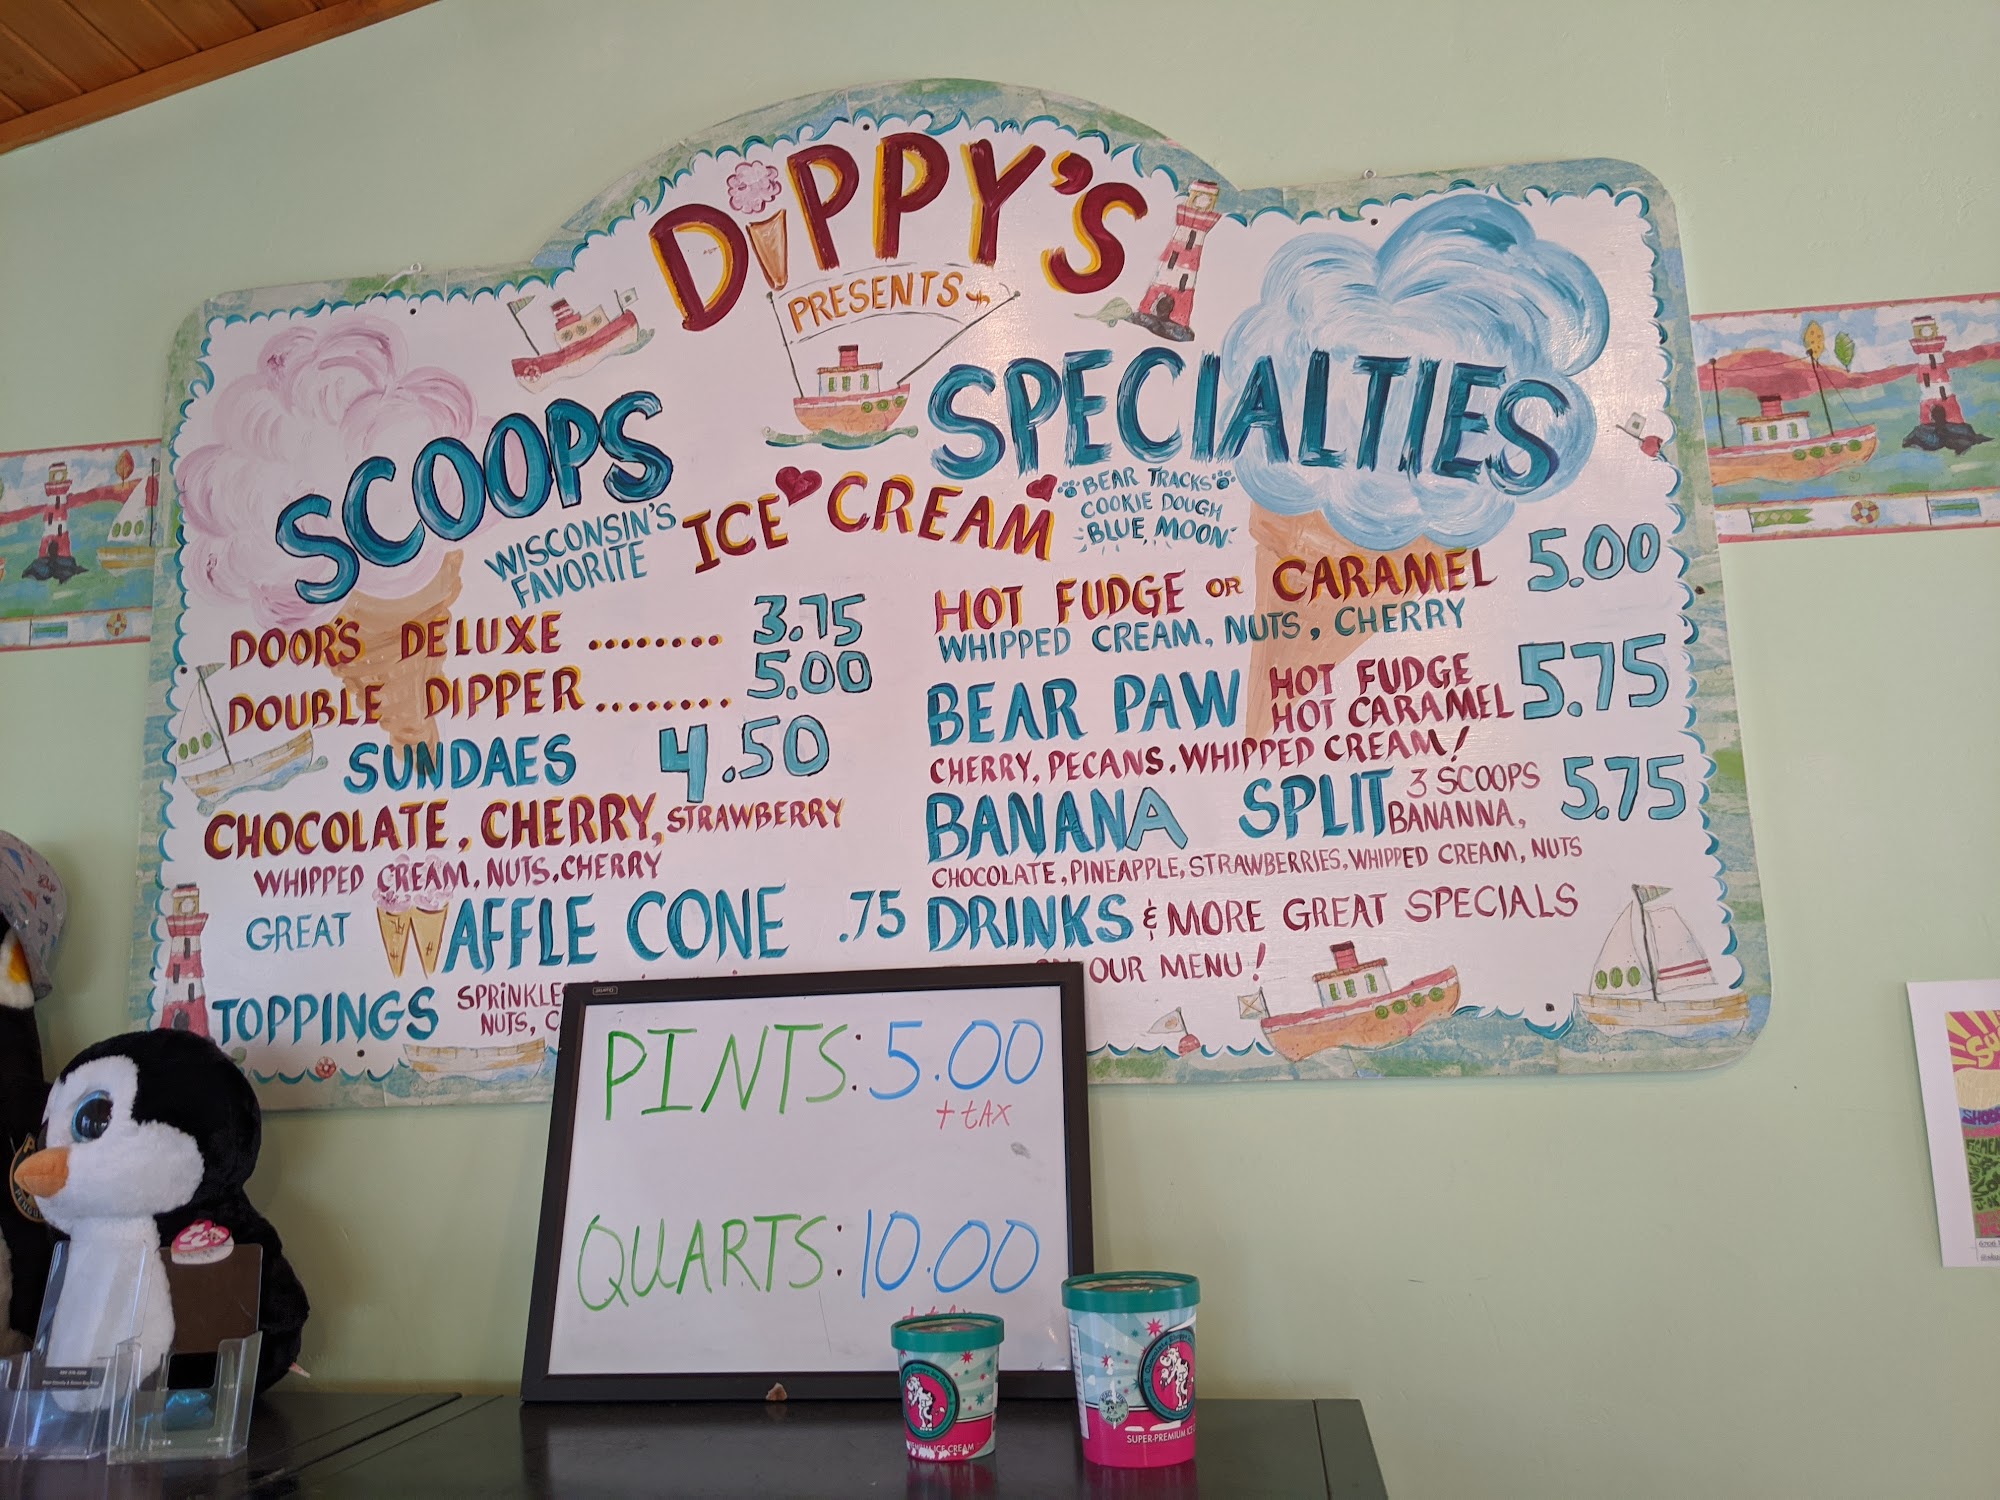 DIPPY'S
PRESENTS
SCOOPS
WISCONSIN'S
FAVORITE
ICE CREAM
DOOR'S DELUXE ........ 3.75
DOUBLE DIPPER ........ 5.00
SUNDAES 4.50
CHOCOLATE, CHERRY, STRAWBERRY
WHIPPED CREAM, NUTS, CHERRY
GREAT WAFFLE CONE .75
TOPPINGS
NUTS,
SPECIALTIES
BEAR TRACKS
COOKIE DOUGH
BLUE MOON
HOT FUDGE OR CARAMEL 5.00
WHIPPED CREAM, NUTS, CHERRY
BEAR PAW HOT FUDGE
HOT CARAMEL 5.75
CHERRY, PECANS, WHIPPED CREAM!
BANANA SPLIT 3 SCOOPS
BANANNA, 5.75
CHOCOLATE, PINEAPPLE, STRAWBERRIES, WHIPPED CREAM, NUTS
DRINKS & MORE GREAT SPECIALS
OUR MENU!
PINTS: 5.00
+ tAX
QUARTS: 10.00
ICE CREAM
SUPER-PREMIUM
ty